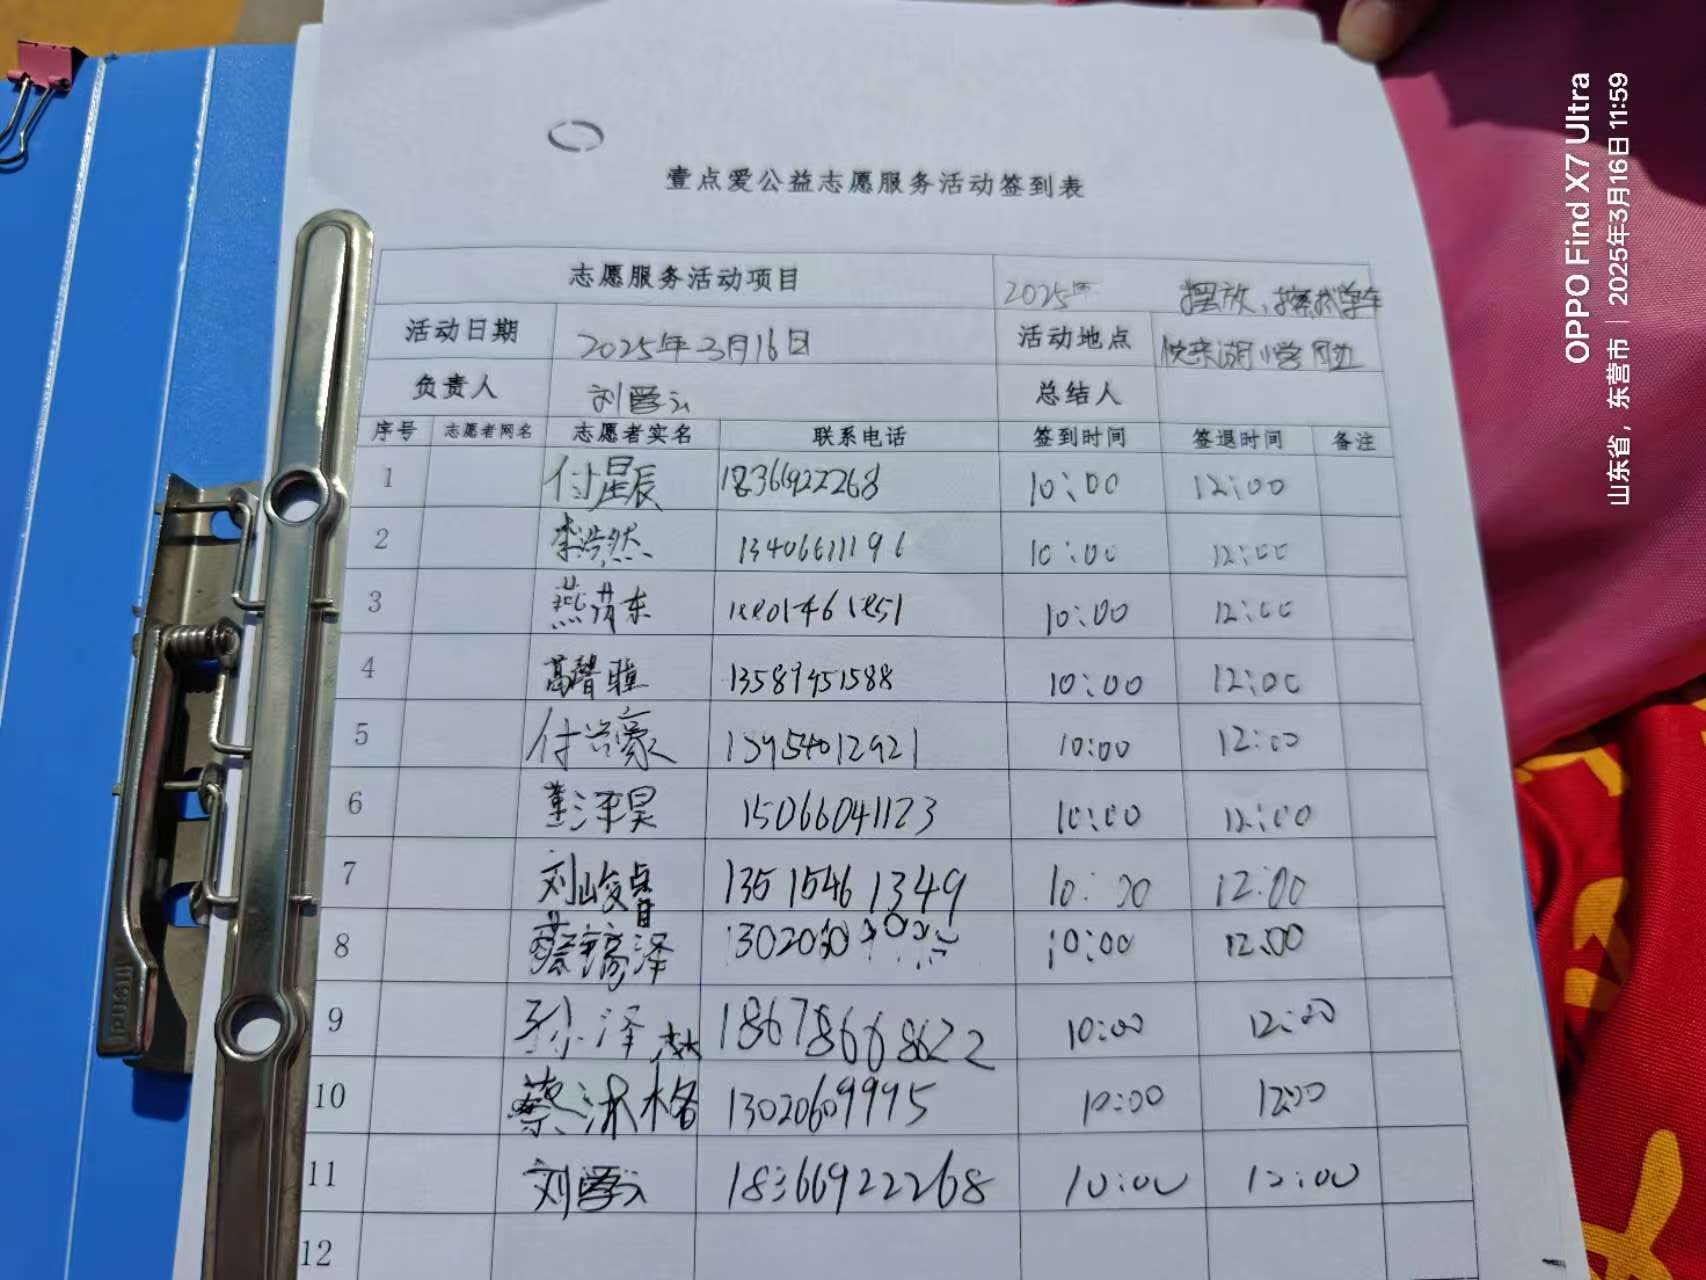 壹点爱公益志愿服务活动签到表
志愿服务活动项目 2025年 摆放、擦拭单车
活动日期 2025年3月16日 活动地点 悦来湖小学周边
负责人 刘学云 总结人
序号 志愿者网名 志愿者实名 联系电话 签到时间 签退时间 备注
1 付星辰 18366922268 10:00 12:00
2 李浩然 13406611196 10:00 12:00
3 10:00 12:00
4 高 13589451588 10:00 12:00
5 付 豪 13954012921 10:00 12:00
6 董泽昊 15066041123 10:00 12:00
7 刘峻 13515461349 10:00 12:00
8 蔡 泽 10:00 12:00
9 孙泽 18678668622 10:00 12:00
10 蔡沐格 13020609995 10:00 12:00
11 刘学云 18366922268 10:00 12:00
12
PUSH
OPPO Find X7 Ultra
山东省，东营市 | 2025年3月16日 11:59